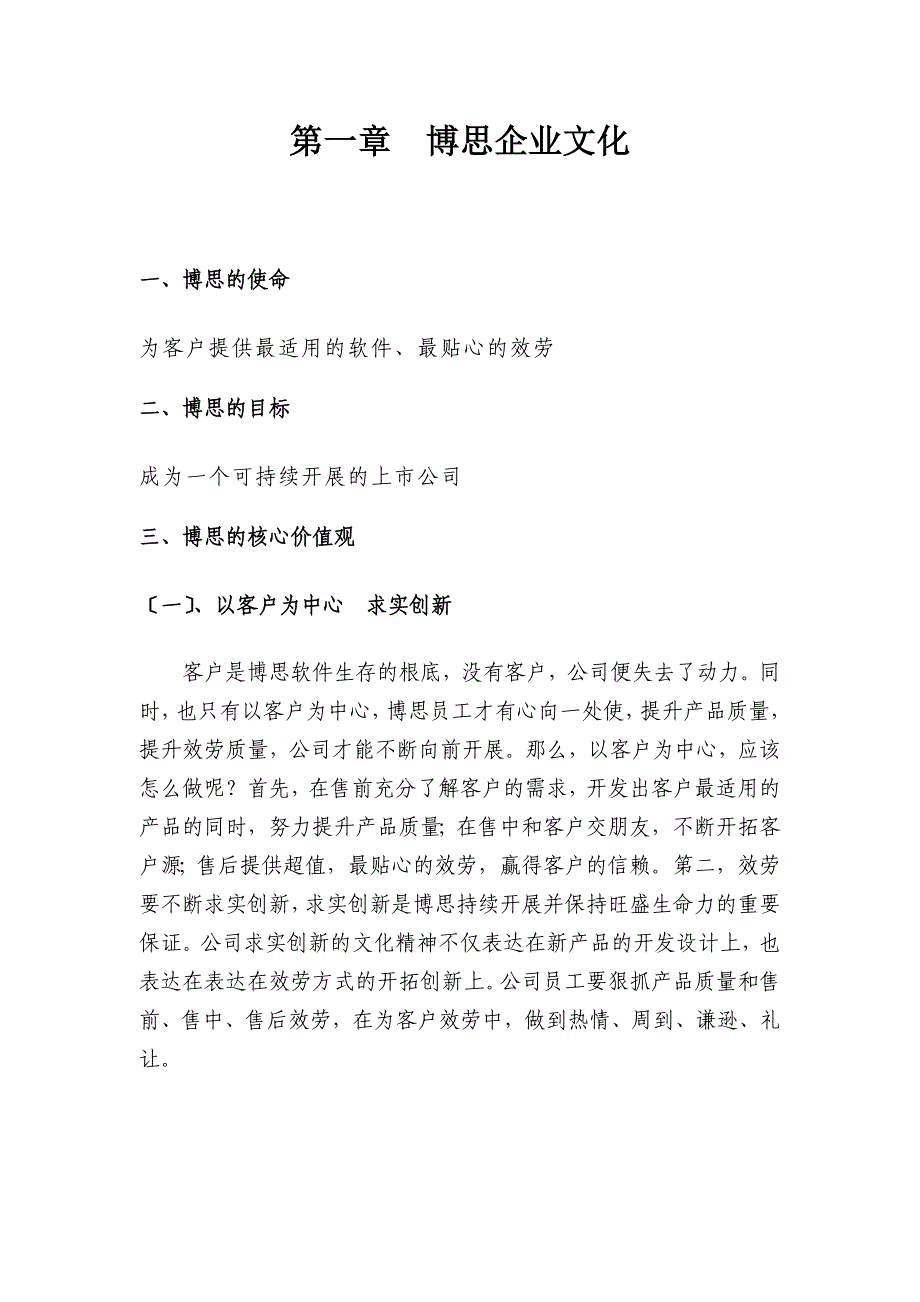 第一章　博思企业文化
一、博思的使命
为客户提供最适用的软件、最贴心的效劳
二、博思的目标
成为一个可持续开展的上市公司
三、博思的核心价值观
〔一〕、以客户为中心　求实创新
客户是博思软件生存的根底，没有客户，公司便失去了动力。同
时，也只有以客户为中心，博思员工才有心向一处使，提升产品质量，
提升效劳质量，公司才能不断向前开展。那么，以客户为中心，应该
怎么做呢？首先，在售前充分了解客户的需求，开发出客户最适用的
产品的同时，努力提升产品质量；在售中和客户交朋友，不断开拓客
户源；售后提供超值，最贴心的效劳，赢得客户的信赖。第二，效劳
要不断求实创新，求实创新是博思持续开展并保持旺盛生命力的重要
保证。公司求实创新的文化精神不仅表达在新产品的开发设计上，也
表达在表达在效劳方式的开拓创新上。公司员工要狠抓产品质量和售
前、售中、售后效劳，在为客户效劳中，做到热情、周到、谦逊、礼
让。